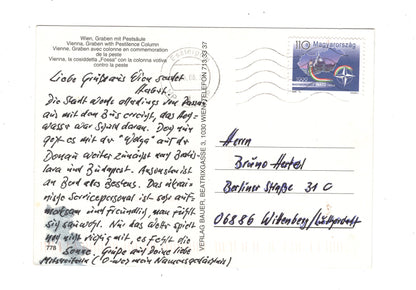 Wien, Graben mit Pestsäule
Vienna, Graben with Pestilence Column
Vienne, Graben avec colonne en commemoration
de la peste
Vienna, la cosiddetta „Fossa" con la colonna votiva
contro la peste
Liebe Grüße aus Wien sendet
Horst.
Die Stadt wurde allerdings von Passau
aus mit dem Bus erreicht, das Hoch-
wasser war Schuld daran. Dann
geht es mit der "Wolga" auf der
Donau weiter zunächst auf Bratis-
lava und Budapest. Ansonsten ist
an Bord alles Bestens. Das ukrai-
nische Servicepersonal ist sehr auf-
merksam und freundlich, man fühlt
sich sauwohl. Nur das Wetter spielt
noch nicht richtig mit, es fehlt die
Sonne. Grüße auf Deine liebe
778
VERLAG BAUER, BEATRIXGASSE 3, 1030 WIEN, TELEFON 713 33 37
110 Magyarország
1999
NATO
OTAN
Herrn
Bruno Hartel
Berliner Straße 31 C
06886 Wittenberg/Lutherstadt